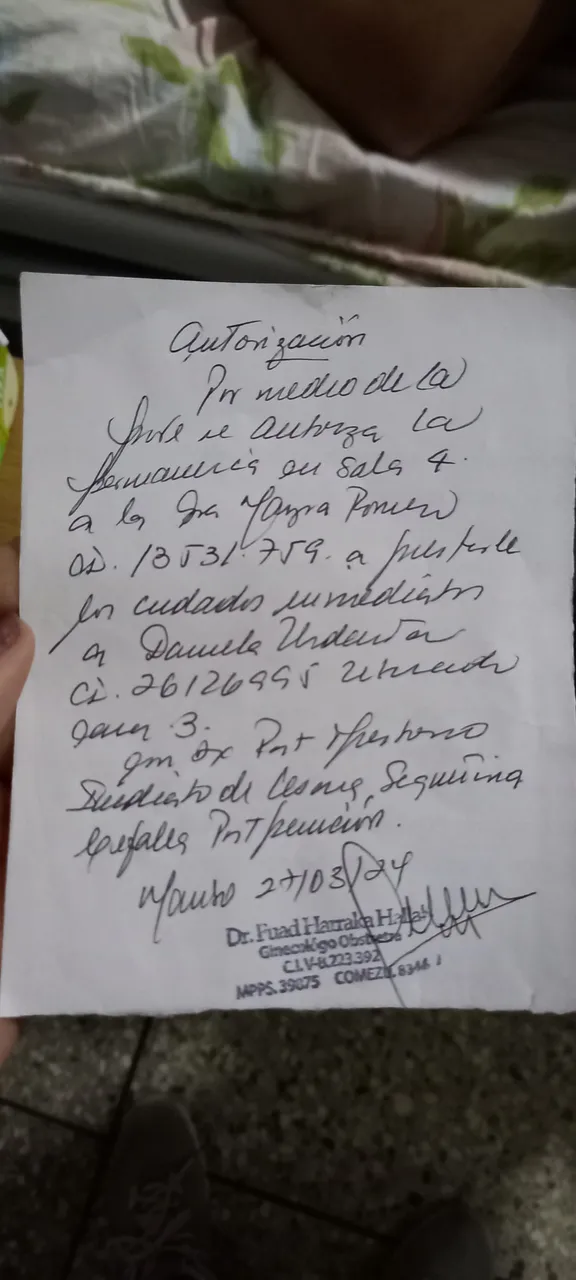 Autorización
Por medio de la
se autorza la
permanencia en Sala 4.
a la Dra Mayra Romero
CI. 13531.759. a prestarle
los cuidados inmediatos
a Daniela Urdaneta
CI. 26126995
3.
Dx Post
Inmediato de Cesarea Segmentaria
Cefalea Post punción.
27/03/24
Dr. Fuad Harraka Hallak
Ginecologo Obstetra
C.I.V-8.223.392
MPPS. 39875 COMEZU. 8346